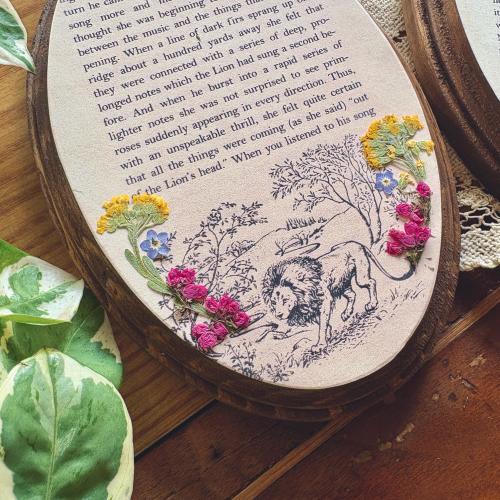 turn he cam
song more and m
thought she was beginning t
between the music and the things tha
pening. When a line of dark firs sprang up o
ridge about a hundred yards away she felt that
they were connected with a series of deep, pro-
longed notes which the Lion had sung a second be-
fore. And when he burst into a rapid series of
lighter notes she was not surprised to see prim-
roses suddenly appearing in every direction. Thus,
with an unspeakable thrill, she felt quite certain
that all the things were coming (as she said) "out
of the Lion's head." When you listened to his song